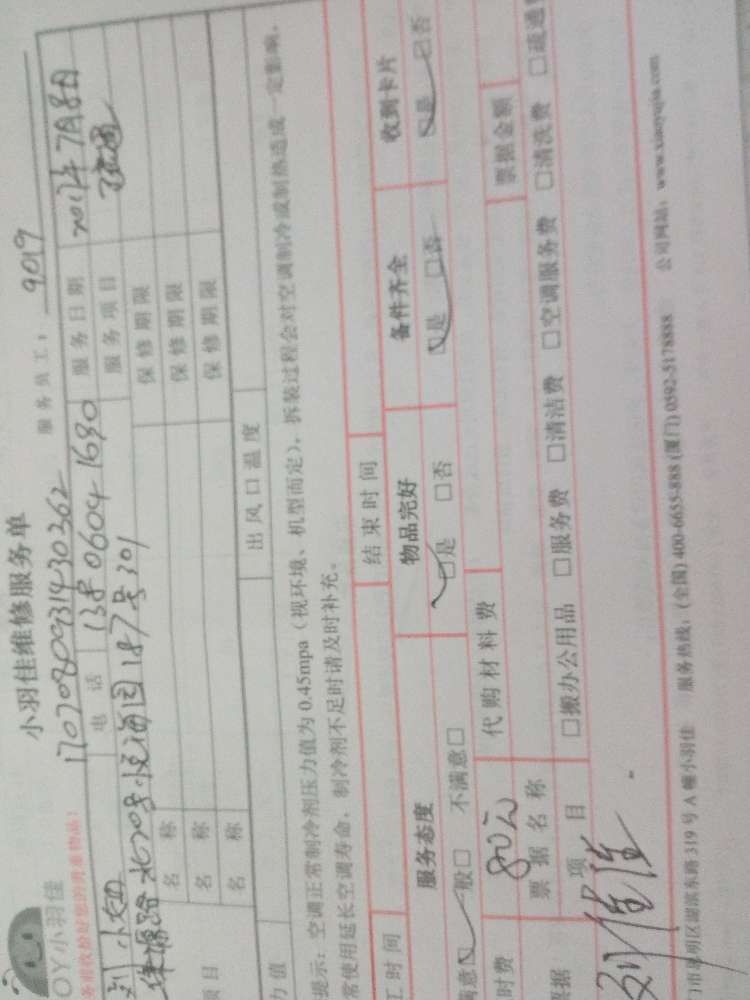 小羽佳维修服务单
OY小羽佳
1707080931430362 服务员工： 9019
务前收拾好您的贵重物品！
刘小姐 电话 138 0604 1690 服务日期 2017年7月8日
267号悦海园187号301 服务项目
名称 保修期限
名称 保修期限
项目 名称 保修期限
力值 出风口温度
提示：空调正常制冷剂压力值为0.45mpa（视环境、机型而定），拆装过程会对空调制冷或制热造成一定影响，
常使用延长空调寿命，制冷剂不足时请及时补充。
工时间 结束时间
服务态度 物品完好 备件齐全 收到卡片
满意☑ 一般□ 不满意□ ☑是 □否 ☑是 □否 ☑是 □否
时费 80元 代购材料费
票据 票据名称 票据金额
项目 □搬办公用品 □服务费 □清洁费 □空调服务费 □清洗费 □疏通
门市思明区湖滨东路319号A幢小羽佳 服务热线：(全国) 400-6655-888 (厦门) 0592-5178888 公司网站：www.xiaoyujia.com